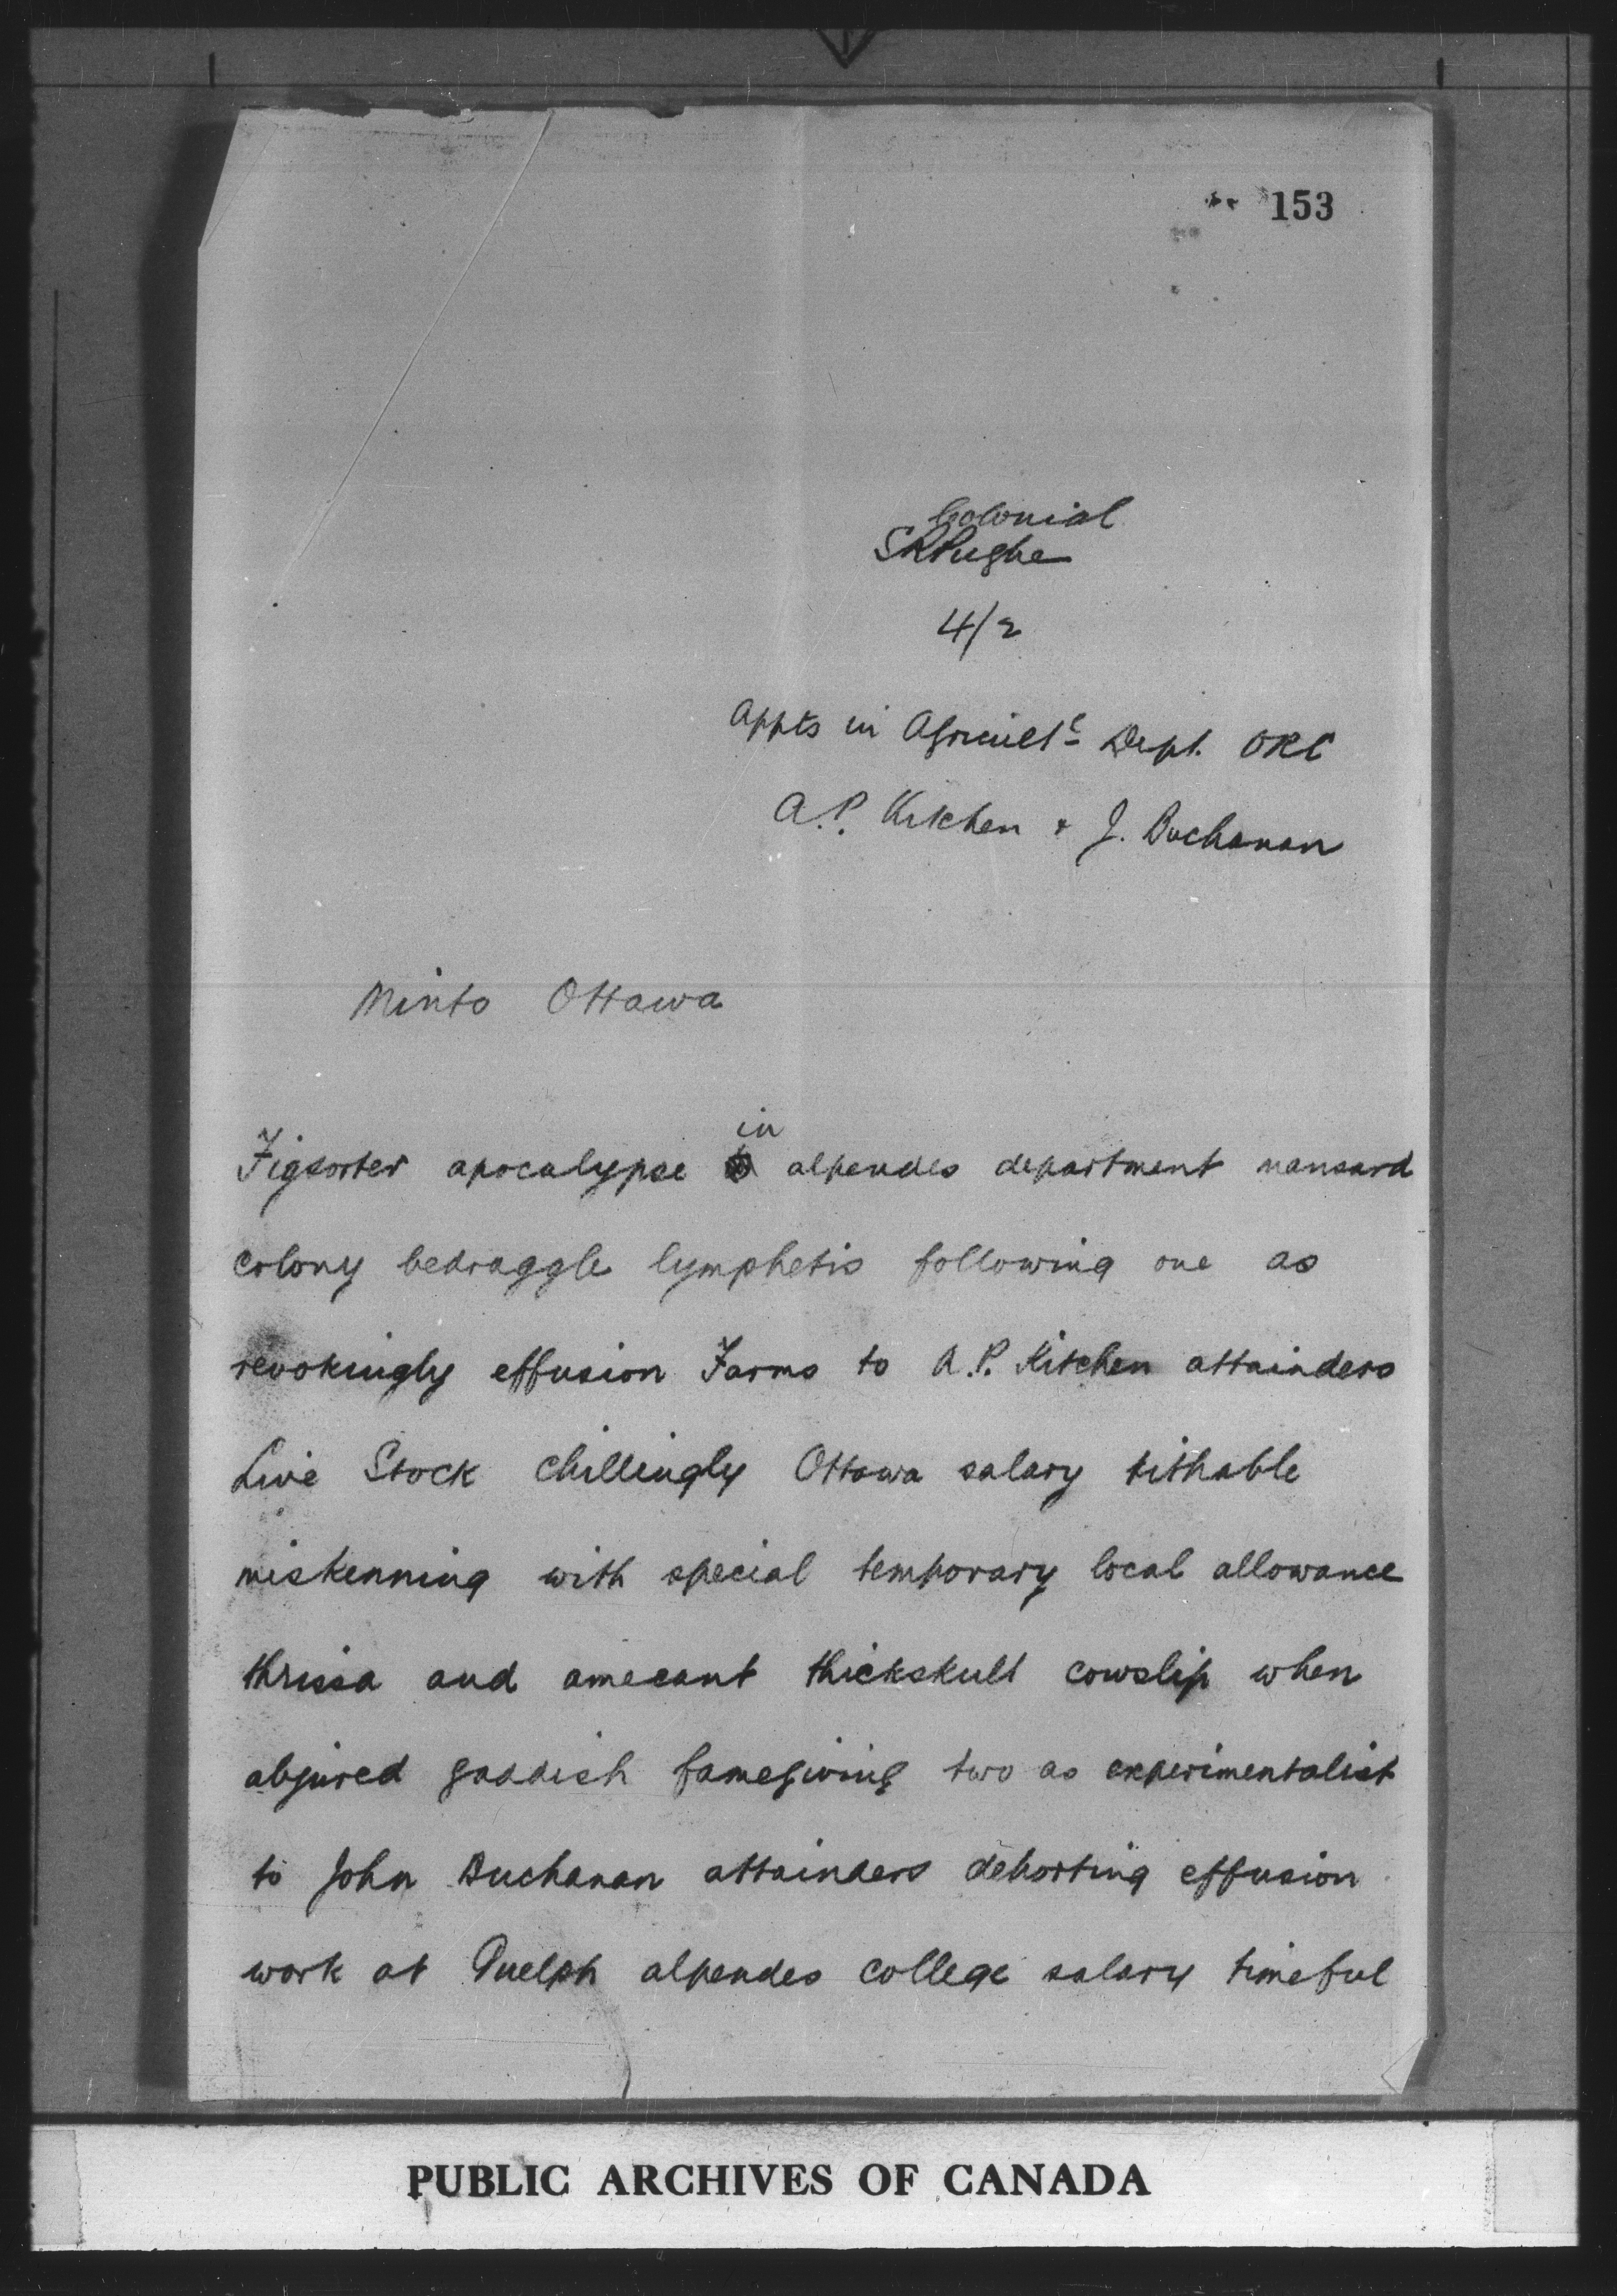 153
Colonial
SRPughe
4/2
Appts in Agricultl Dept. ORC
A.P. Kitchen + J. Buchanan
Minto Ottawa
in
Figsorter apocalypse alpendes department nansard
colony bedraggle lymphetis following one as
revokingly effusion Farms to A.P. Kitchen attainders
Live Stock chillingly Ottawa salary tithable
miskenning with special temporary local allowance
thrissa and amecant thickskull cowslip when
abjured gaddish famegiving two as experimentalist
to John Buchanan attainders dehorting effusion
work at Guelph alpendes college salary timeful
PUBLIC ARCHIVES OF CANADA